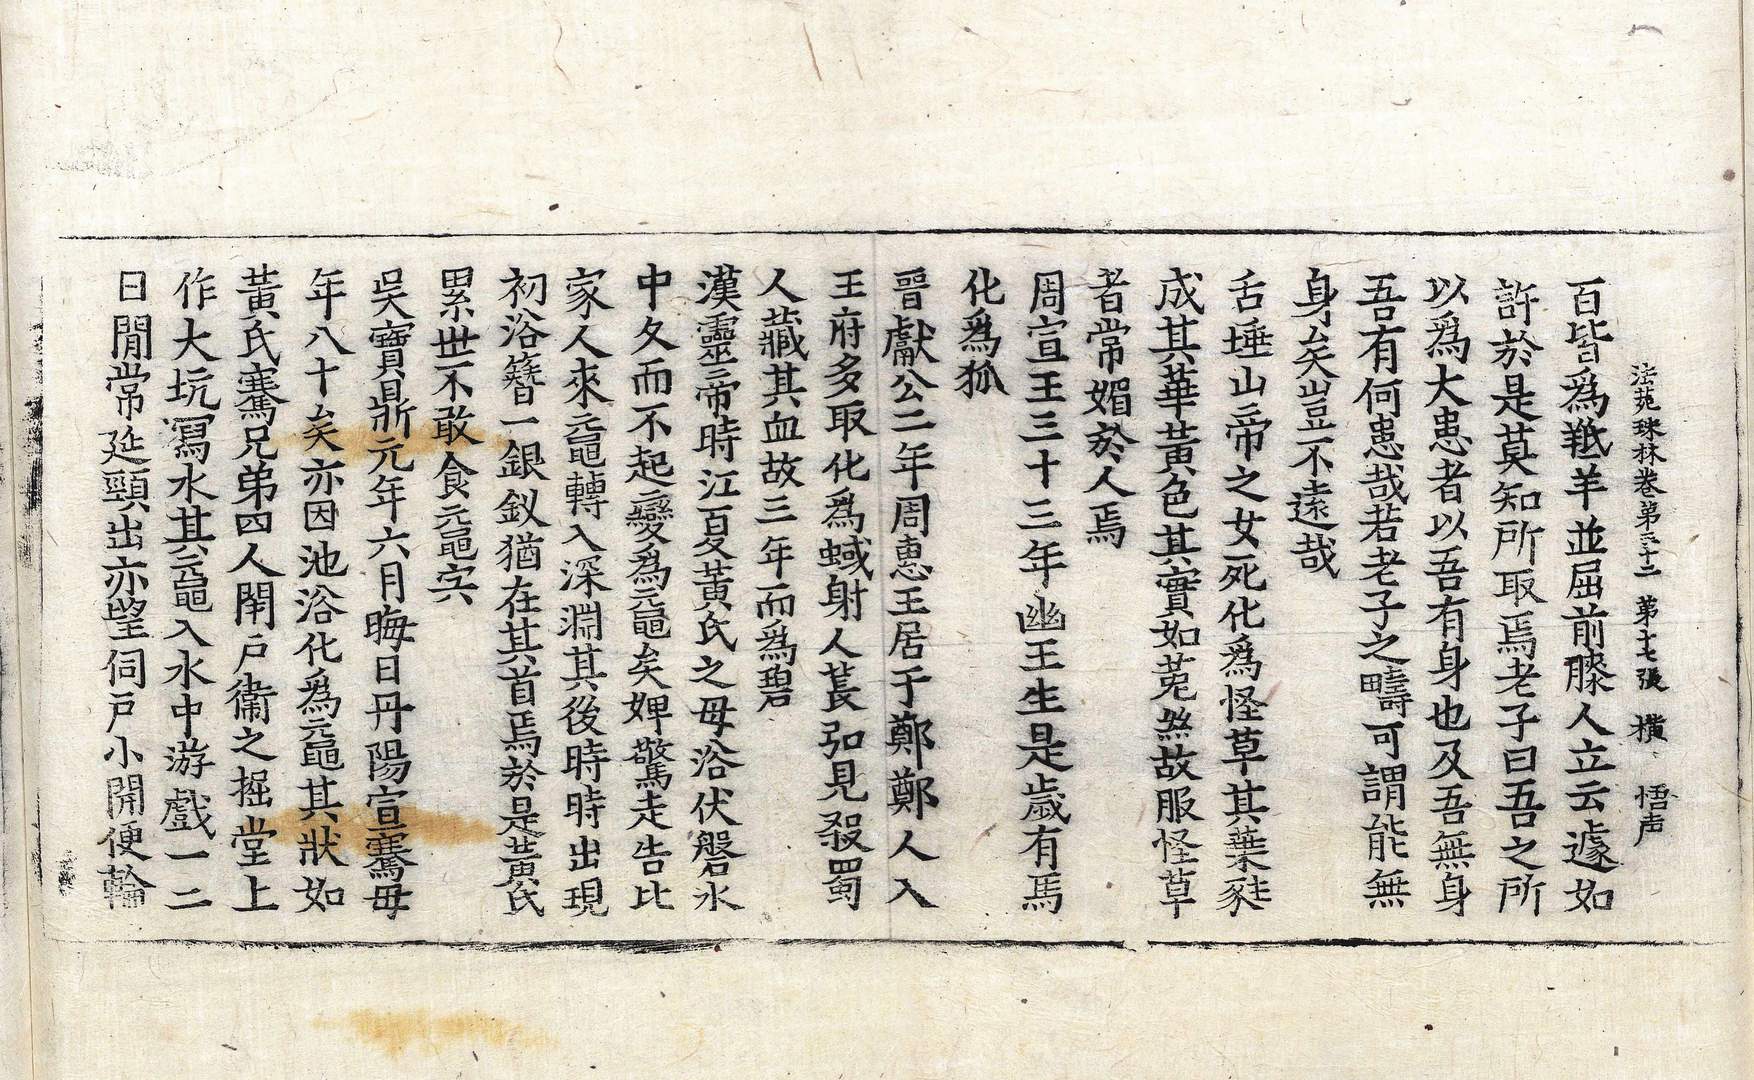 法苑珠林卷第三十二 第十七張 橫 悟声
百皆爲羝羊並屈前膝人立云遽如
許於是莫知所取焉老子曰吾之所
以爲大患者以吾有身也及吾無身
吾有何患哉若老子之疇可謂能無
身矣豈不遠哉
舌埵山帝之女死化爲怪草其葉
成其華黃色其實如菟絲故服怪草
者常媚於人焉
周宣王三十三年幽王生是歲有馬
化爲狐
晉獻公二年周惠王居于鄭鄭人入
王府多取化爲蜮射人萇弘見殺蜀
人藏其血故三年而爲碧
漢靈帝時江夏黃氏之母浴伏磐水
中久而不起變爲黿矣婢驚走告比
家人來黿轉入深淵其後時時出現
初浴簪一銀釵猶在其首焉於是黃氏
累世不敢食黿宍
吳寶鼎元年六月晦日丹陽宣騫母
年八十矣亦因池浴化爲黿其狀如
黃氏騫兄弟四人閉戶衛之掘堂上
作大坑寫水其黿入水中游戲一二
日閒常延頸出亦望伺戶小開便輪